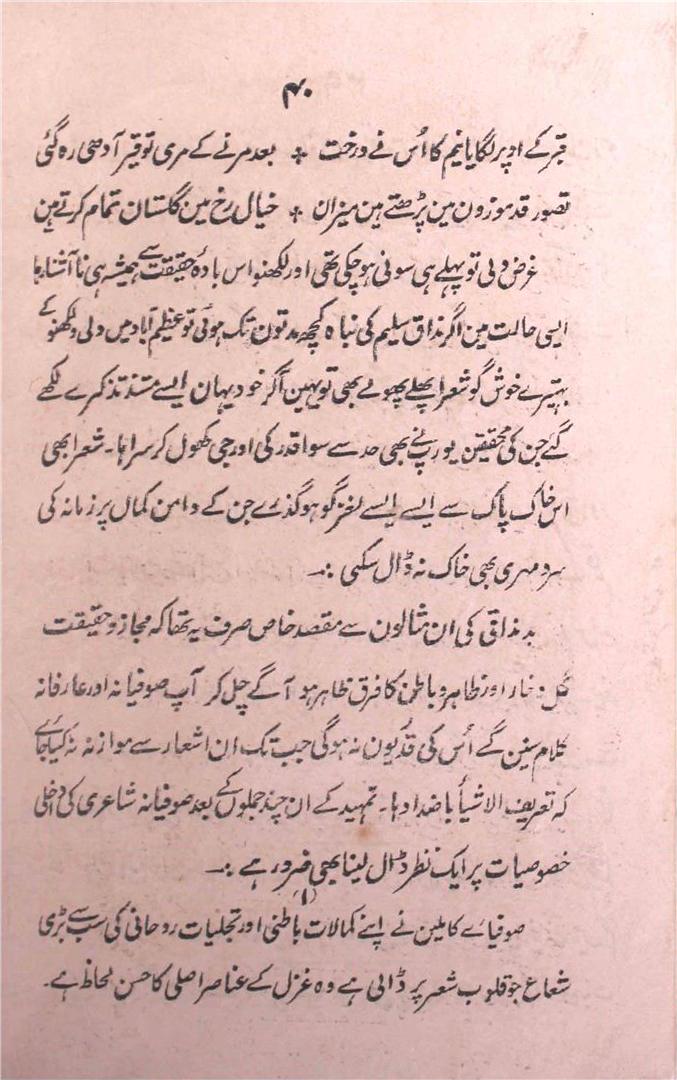 ۴۰
قبر کے اوپر لگایا نیم کا اُس نے درخت ٭ بعد مرنے کے مری توقیر آدھی رہ گئی
تصور قد موزون مین پڑھتے ہین میزان ٭ خیال رخ مین گلستان تمام کرتے ہین
غرض دلی تو پہلے ہی سونی ہوچکی تھی اور لکھنؤ اس بادۂ حقیقت سے ہمیشہ ہی نا آشنا رہا
ایسی حالت مین اگر مذاق سلیم کی نباہ کچھ مدتون تک ہوئی تو عظیم آباد میں دلی و لکھنؤ کے
بہتیرے خوش گو شعرا پھلے پھولے بھی تو یہین آکر خود یہان ایسے مستند تذکرے لکھے
گئے جن کی محققین یورپ نے بھی حد سے سوا قدر کی اور جی کھول کر سراہا۔ شعرا بھی
اس خاک پاک سے ایسے ایسے نغز گو ہو گذرے جن کے دامن کمال پر زمانہ کی
سرد مہری بھی خاک نہ ڈال سکی :۔
بد مذاقی کی ان مثالون سے مقصد خاص صرف یہ تھا کہ مجاز و حقیقت
گل و خار اور ظاہر و باطن کا فرق ظاہر ہو آگے چل کر آپ صوفیانہ اور عارفانہ
کلام سنین گے اُس کی قدر یون نہ ہوگی جب تک ان اشعار سے موازنہ نہ کیا جائے
کہ تعریف الاشیأ باضدادہا۔ تمہید کے ان چند جملوں کے بعد صوفیانہ شاعری کی داخلی
خصوصیات پر ایک نظر ڈال لینا بھی ضرور ہے :۔
(۱)
صوفیاے کاملین نے اپنے کمالات باطنی اور تجلیات روحانی کی سب سے بڑی
شعاع جو قلوب شعر پر ڈالی ہے وہ غزل کے عناصر اصلی کا حسن لحاظ ہے۔